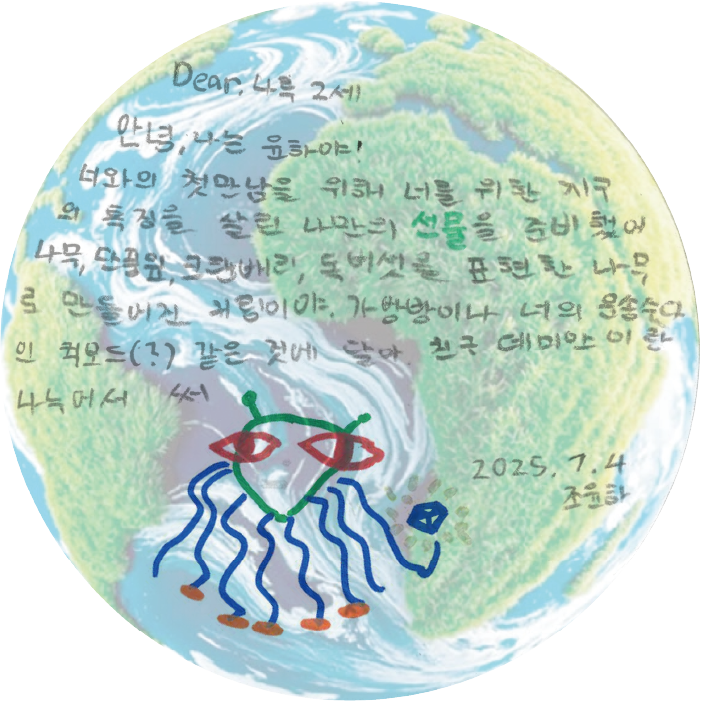 Dear. 나륵 2세
안녕, 나는 윤하야!
너와의 첫만남을 위해 너를 위한 지구
의 특징을 살린 나만의 선물을 준비했어
나무, 단풍원, 크랜베리, 독버섯을 표현한 나무
로 만들어진 키링이야. 가방방이나 너의 운송수단
인 퀵보드(?) 같은 것에 달아. 친구 데미안이란
나눠서 써
2025. 7. 4
조윤하